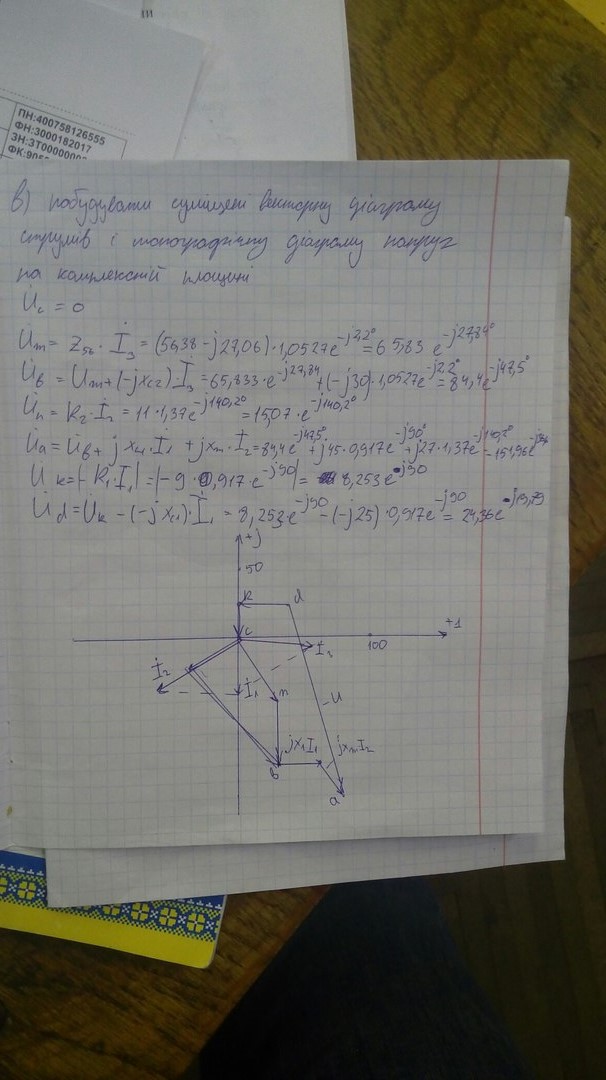 III
ПН:400758126555
ФН:3000182017
ЗН:ЗТ00000000
в) побудувати суміщені векторну діаграму
струмів і топографічну діаграму напруг
на комплексній площині
U̇c = 0
U̇m = Z5в · İ3 = (56,38 - j27,06) · 1,0527e^-j2,2° = 65,83 e^-j27,84°
U̇в = U̇m + (-jxc2) İ3 = 65,833 · e^-j27,84 + (-j30) · 1,0527e^-j2,2° = 84,4e^-j47,5°
U̇n = R2 · İ2 = 11 · 1,37e^-j140,2° = 15,07 · e^-j140,2°
U̇a = U̇в + jxL1 · İ1 + jxm · İ2 = 84,4e^-j47,5° + j45 · 0,917e^-j90° + j27 · 1,37e^-j140,2° = 151,96e
U̇k = |-R1 · İ1| = |-9 · 0,917 · e^-j90| = 8,253e^j90
U̇d = U̇k - (-jxc1) · İ1 = 8,253 · e^-j90 - (-j25) · 0,917e^-j90 = 24,36e^j19,79
+j
50
k
d
c
+1
100
İ3
İ2
İ1
m
U
jx1İ1
jxmİ2
в
a